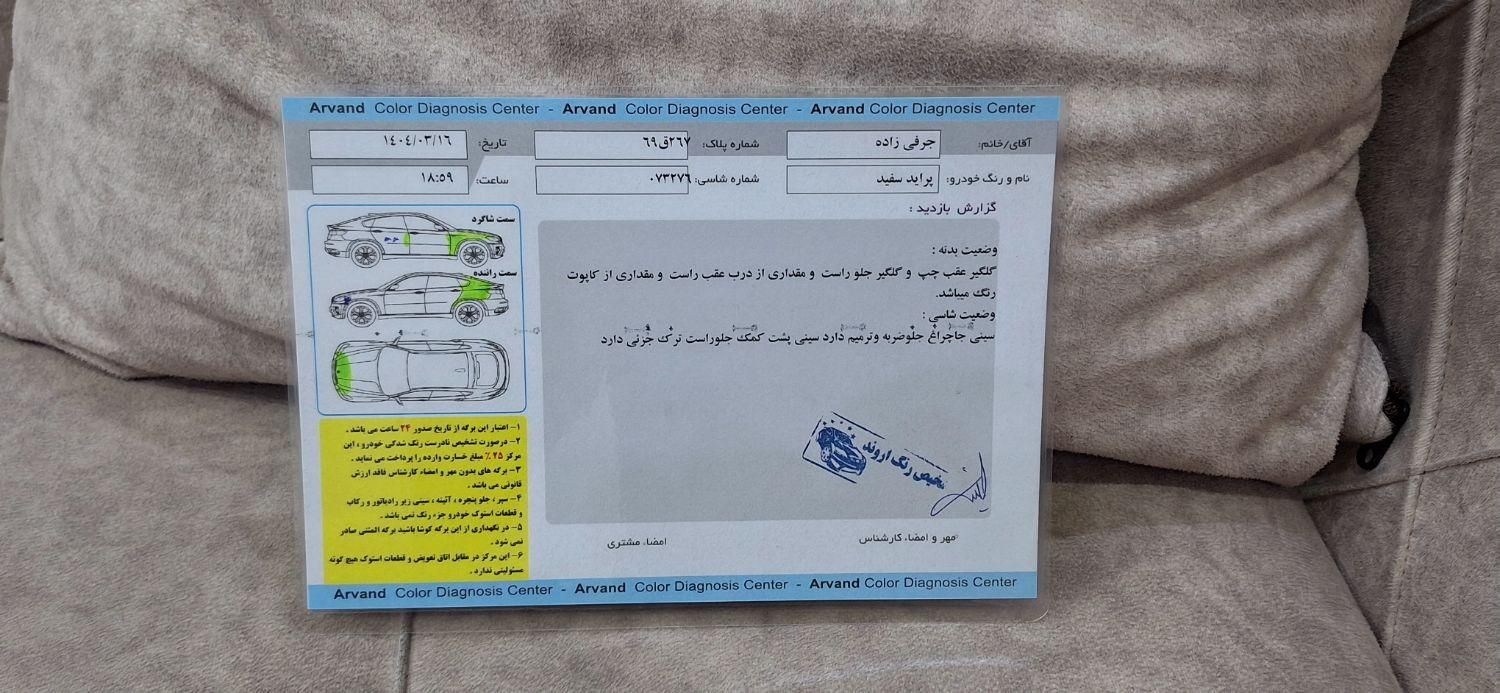 Arvand Color Diagnosis Center - Arvand Color Diagnosis Center - Arvand Color Diagnosis Center
آقای/خانم: جرفی زاده
شماره پلاک: ۲۶۷ق۶۹
تاریخ: ۱۴۰۴/۰۳/۱۶
نام و رنگ خودرو: پراید سفید
شماره شاسی: ۰۷۳۲۷۶
ساعت: ۱۸:۵۹
گزارش بازدید :
وضعیت بدنه :
گلگیر عقب چپ و گلگیر جلو راست و مقداری از درب عقب راست و مقداری از کاپوت
رنگ میباشد.
وضعیت شاسی :
سینی جاچراغ جلوضربه وترمیم دارد سینی پشت کمک جلوراست ترک جزئی دارد
سمت شاگرد
سمت راننده
۱- اعتبار این برگه از تاریخ صدور ۲۴ ساعت می باشد .
۲- درصورت تشخیص نادرست رنگ شدگی خودرو ، این
مرکز ۲۵ ٪ مبلغ خسارت وارده را پرداخت می نماید .
۳- برگه های بدون مهر و امضاء کارشناس فاقد ارزش
قانونی می باشد .
۴- سپر ، جلو پنجره ، آئینه ، سینی زیر رادیاتور و رکاب
و قطعات استوک خودرو جزء رنگ نمی باشد .
۵- در نگهداری از این برگه کوشا باشید برگه المثنی صادر
نمی شود .
۶- این مرکز در مقابل اتاق تعویض و قطعات استوک هیچ گونه
مسئولیتی ندارد .
تشخیص رنگ اروند
مهر و امضاء کارشناس
امضاء مشتری
Arvand Color Diagnosis Center - Arvand Color Diagnosis Center - Arvand Color Diagnosis Center